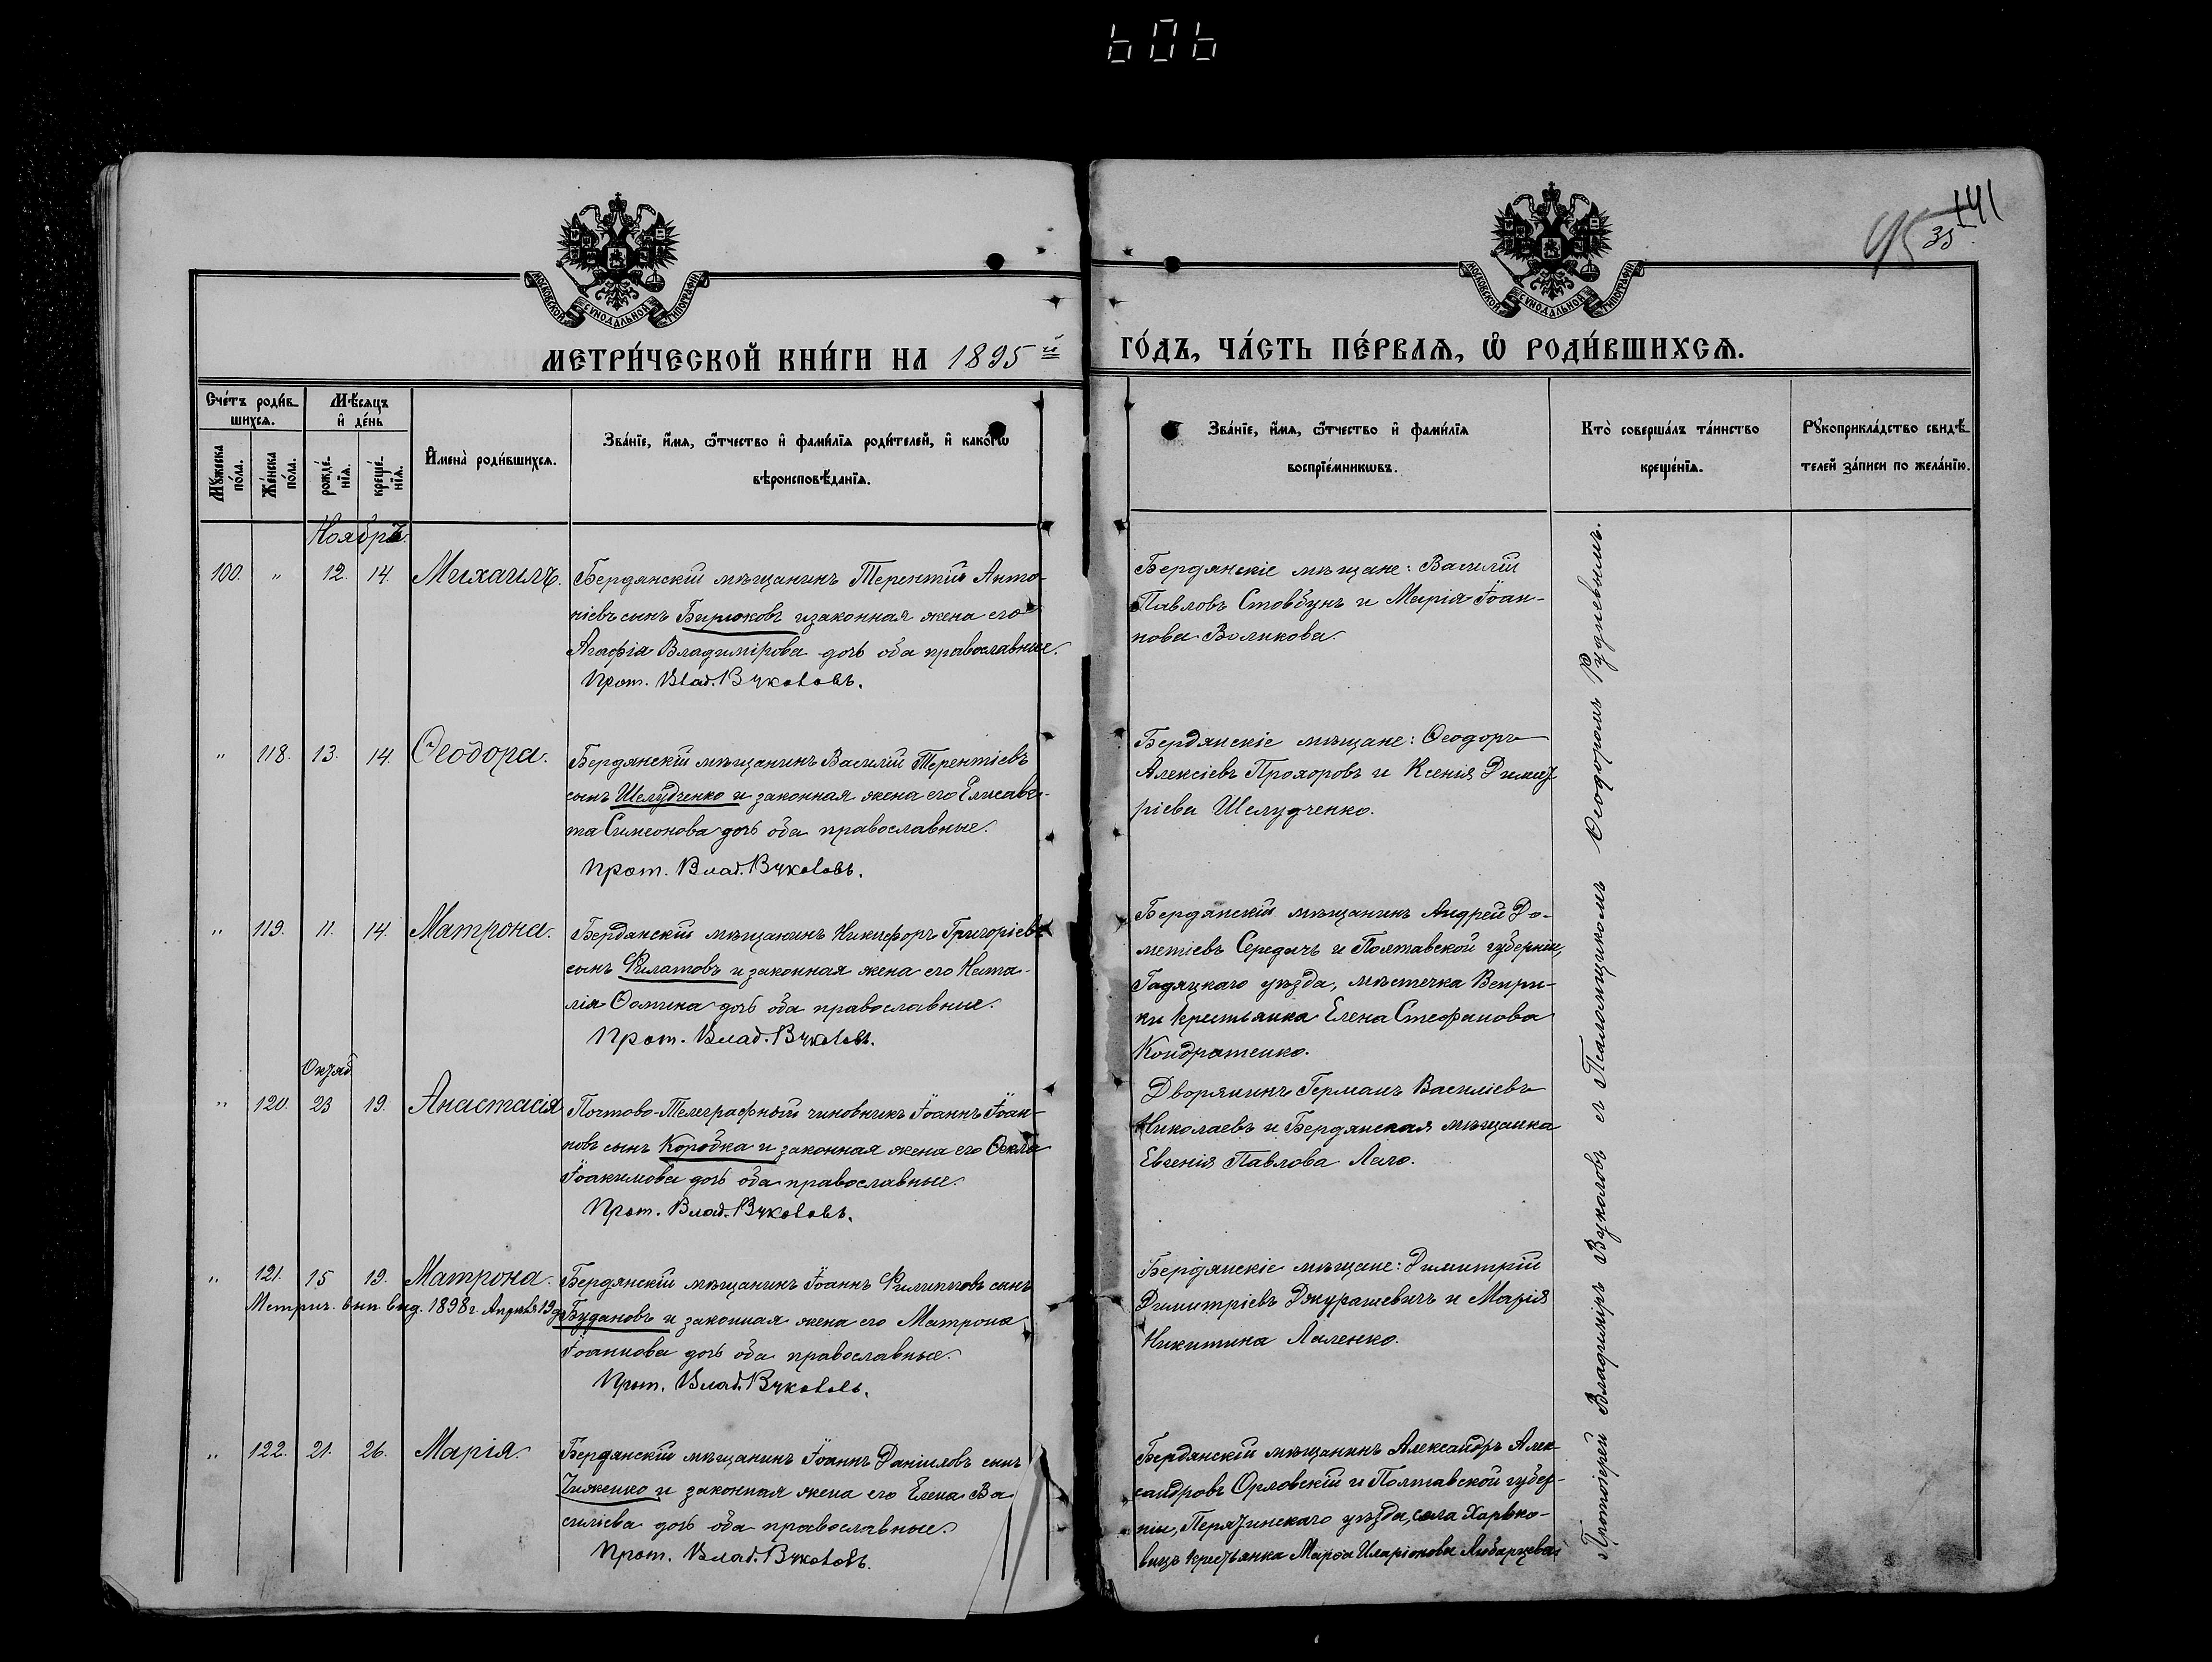 606
141
95
35
МОСКОВСКОЙ СѴНОДАЛЬНОЙ ТИПОГРАФІИ
МОСКОВСКОЙ СѴНОДАЛЬНОЙ ТИПОГРАФІИ
МЕТРИ́ЧЕСКОЙ КНИ́ГИ НА 1895й
ГО́ДЪ, ЧА́СТЬ ПЕ́РВАѦ, Ѡ҆ РОДИ́ВШИХСѦ.
Сче́тъ роди́вшихсѧ.
Мꙋ́жеска по́ла.
Же́нска по́ла.
Мѣ́сѧцъ и҆ де́нь
рожде́нїѧ.
креще́нїѧ.
И҆мена̀ роди́вшихсѧ.
Зва́нїе, и҆́мѧ, ѻ҆́тчество и҆ фами́лїѧ роди́телей, и҆ како́гѡ
вѣроисповѣ́данїѧ.
Зва́нїе, и҆́мѧ, ѻ҆́тчество и҆ фами́лїѧ
воспрїе́мникѡвъ.
Кто̀ соверша́лъ та́инство
креще́нїѧ.
Рꙋкоприкла́дство свидѣ́-
телей за́писи по жела́нїю.
Ноябрь.
100. " 12. 14. Михаилъ.
Бердянскій мѣщанинъ Терентій Анто-
ніевъ сынъ Бирюковъ и законная жена его
Агафія Владимірова дочь оба православные.
Прот. Влад. Вуколовъ.
Бердянскіе мѣщане: Василій
Павловъ Стовбунъ и Марія Іоан-
нова Воликова.
" 118. 13. 14. Ѳеодора.
Бердянскій мѣщанинъ Василій Терентіевъ
сынъ Шелудченко и законная жена его Елисаве-
та Симеонова дочь оба православные.
Прот. Влад. Вуколовъ.
Бердянскіе мѣщане: Ѳеодоръ
Алексіевъ Прохоровъ и Ксенія Димит
ріева Шелудченко.
" 119. 11. 14. Матрона.
Бердянскій мѣщанинъ Никифоръ Григоріевъ
сынъ Филатовъ и законная жена его Ната-
лія Ѳомина дочь оба православные.
Прот. Влад. Вуколовъ.
Бердянскій мѣщанинъ Андрей До-
метіевъ Середачъ и Полтавской губерніи,
Гадяцкаго уѣзда, мѣстечка Веири-
ки крестьянка Елена Стефанова
Кондратенко.
Октяб
" 120. 23 19. Анастасія
Почтово-Телеграфный чиновникъ Іоаннъ Іоан-
новъ сынъ Коробка и законная жена его Ѳекла
Іоакимова дочь оба православные.
Прот. Влад. Вуколовъ.
Дворянинъ Германъ Василіевъ
Николаевъ и Бердянская мѣщанка
Евгенія Павлова Лаго.
" 121. 15 19. Матрона.
Метрич. вып. выд. 1898 г. Апрѣля 19 д.
Бердянскій мѣщанинъ Іоаннъ Филипповъ сынъ
Будановъ и законная жена его Матрона
Іоаннова дочь оба православные.
Прот. Влад. Вуколовъ.
Бердянскіе мѣщане: Димитрій
Димитріевъ Джурашевичъ и Марія
Никитина Лаленко.
" 122. 21. 26. Марія.
Бердянскій мѣщанинъ Іоаннъ Даніиловъ сынъ
Чиженко и законная жена его Елена Ва
силіева дочь оба православные.
Прот. Влад. Вуколовъ.
Бердянскій мѣщанинъ Александръ Алек-
сандровъ Орловскій и Полтавской губер-
ніи, Перятинскаго уѣзда, села Харько-
вицъ крестьянка Марѳа Иларіонова Любарцева
Протоіерей Владиміръ Вуколовъ съ Псаломщикомъ Ѳеодоромъ Рудневымъ.